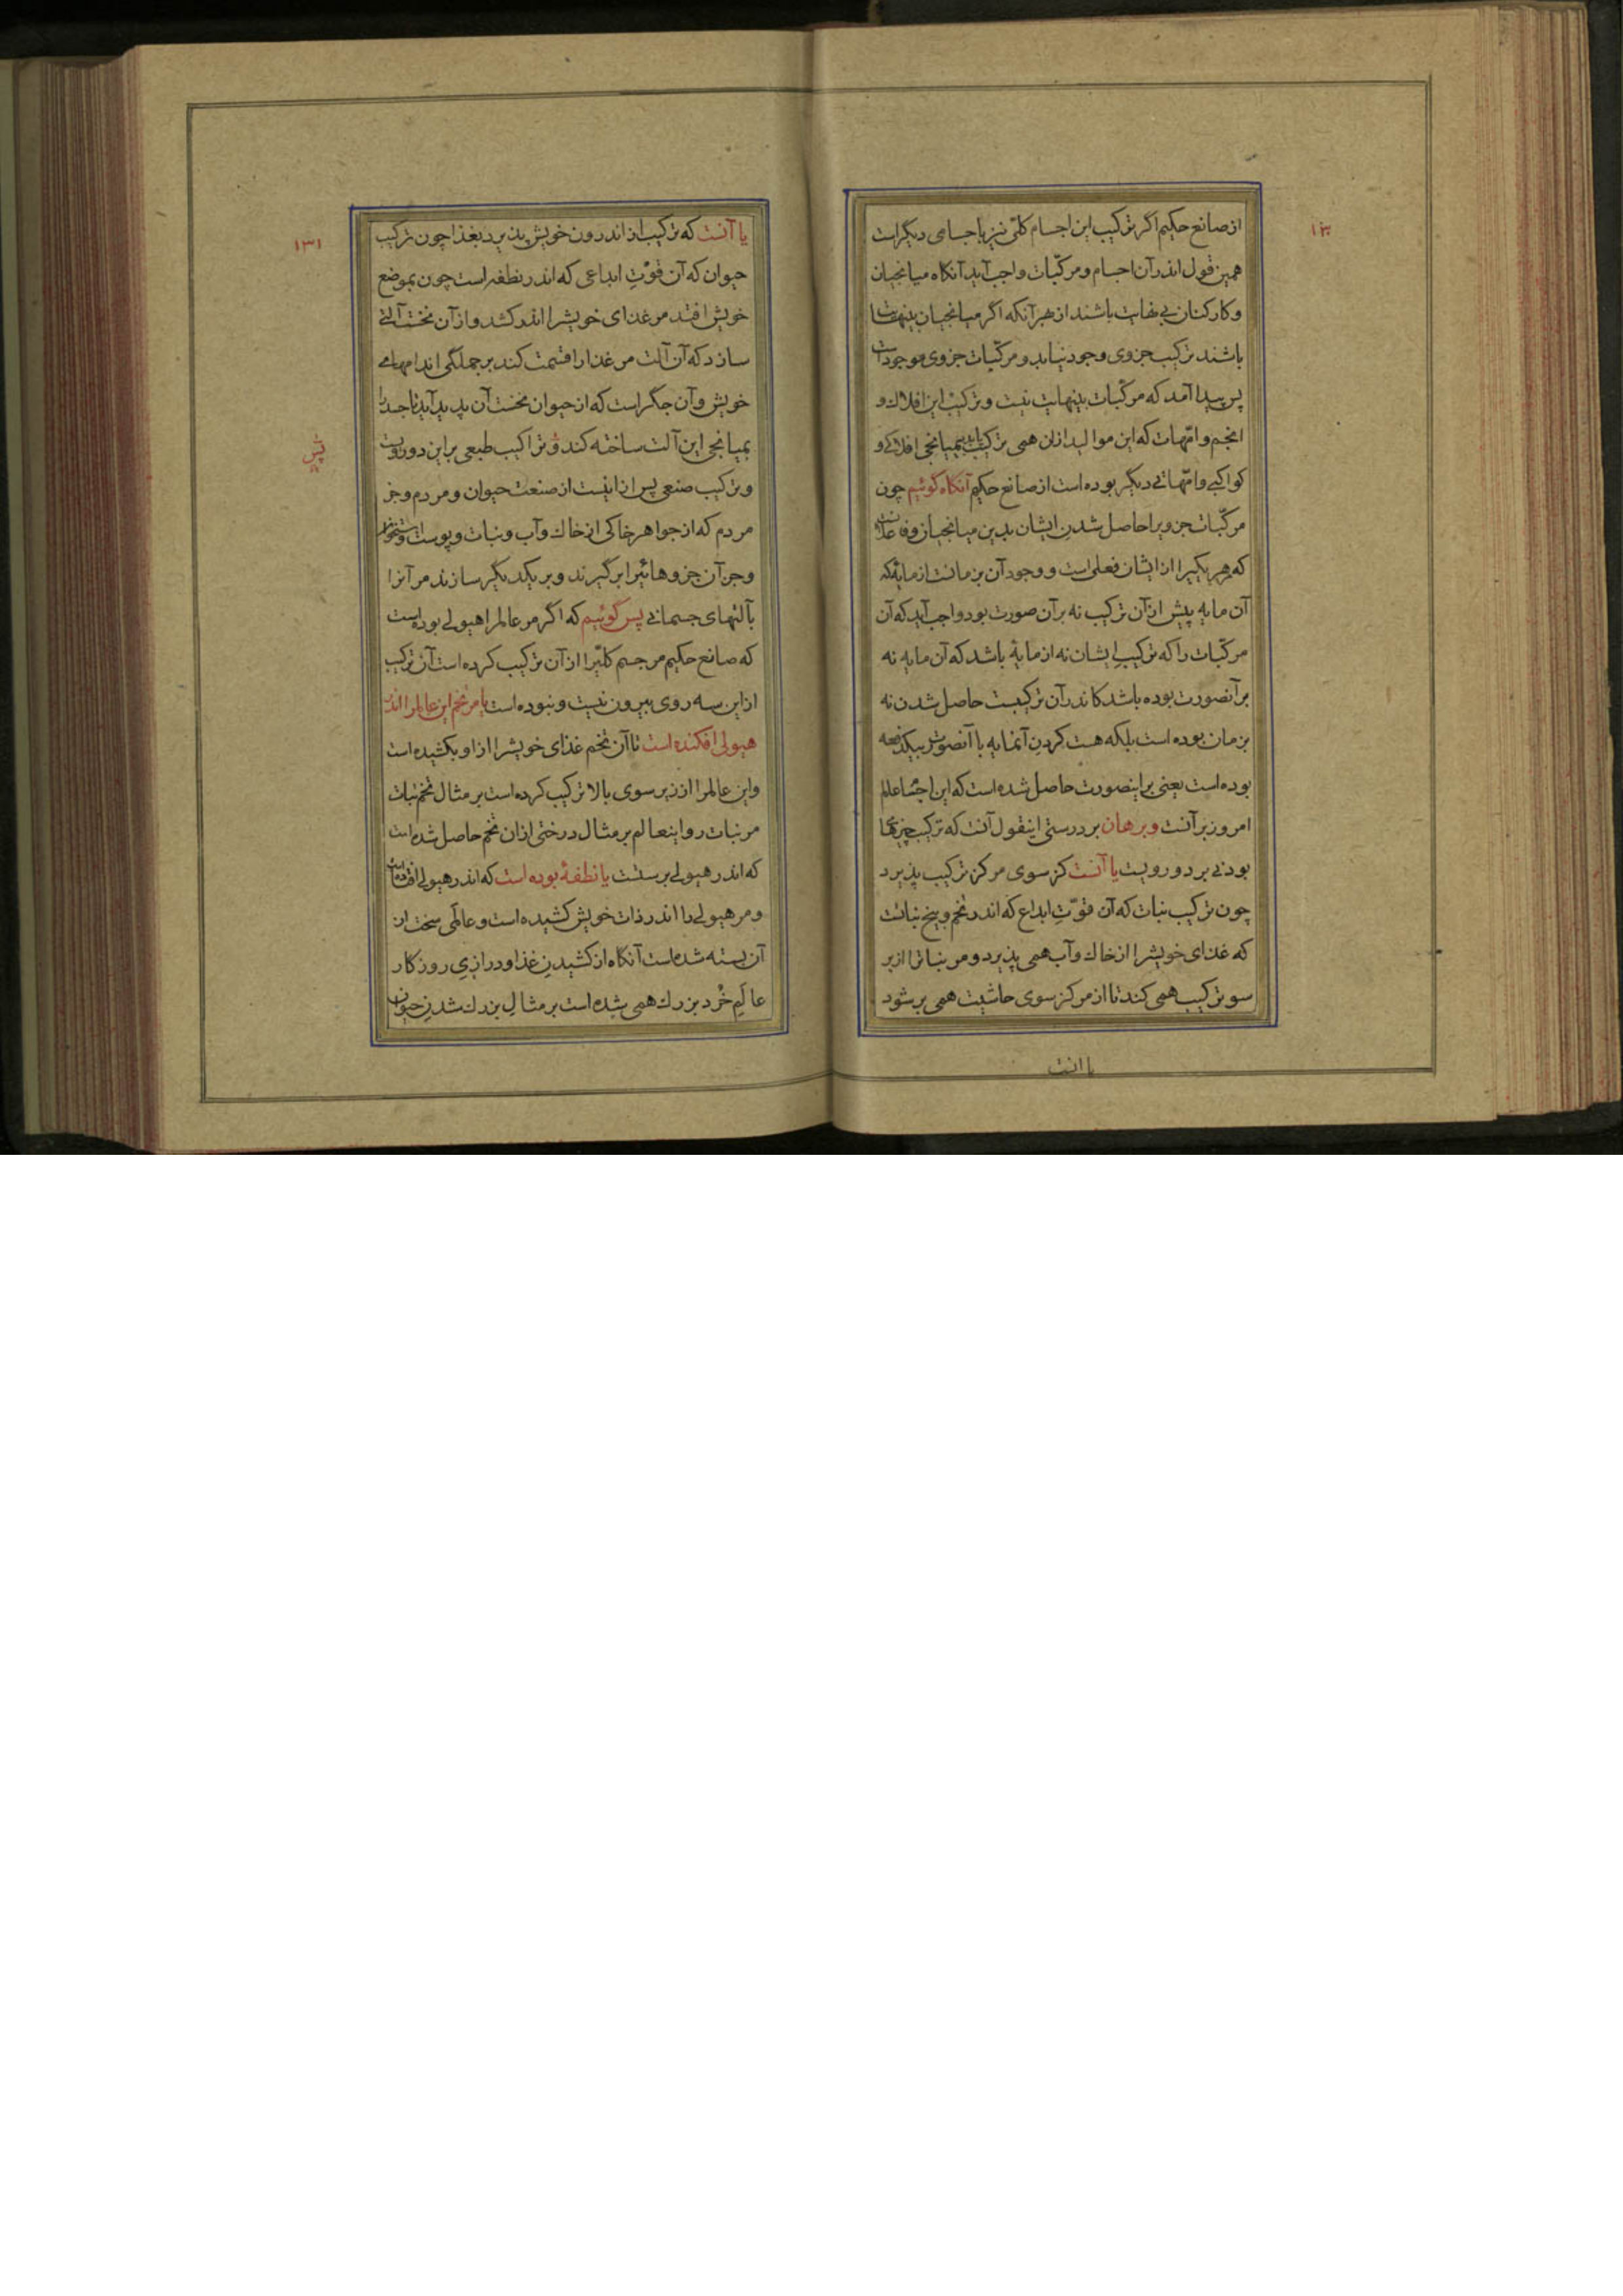 ۱۳۰
از صانع حکیم اگر ترکیب این اجسام کلّی نیز با جسامی دیگراست
همین قول اندر آن اجسام و مرکّبات واجب آید آنگاه میانجیان
و کارکنان بی نهایت باشند از بهر آنکه اگر میانجیان بینهایت
باشند ترکیب جزوی وجود نیابد و مرکّبات جزوی موجوداست
پس پیدا آمد که مرکّبات بینهایت نیست و ترکیب این افلاک و
انجم و امّهات که این موالید ازان همی ترکیب یابد بمیانجی افلاکی و
کواکبی و امّهاتی دیگر بوده است از صانع حکیم آنگاه گوئیم چون
مرکّبات جزویرا حاصل شدن ایشان بدین میانجیان و فاعلانست
که هر یکیرا از ایشان فعلی است و وجود آن بزمانست از مایهٔ که
آن مایه پیش ازآن ترکیب نه برآن صورت بود واجب آید که آن
مرکّبات را که ترکیب ایشان نه از مایهٔ باشد که آن مایه نه
برآنصورت بوده باشد کاندر آن ترکیبست حاصل شدن نه
بزمان بوده است بلکه هست کردن آنمایه با آنصورت بیکدفعه
بوده است یعنی براینصورت حاصل شده است که این اجسام عالم
امروز برآنست و برهان بر درستی اینقول آنست که ترکیب چیزهای
بودنی بر دو رویست یا آنست کز سوی مرکز ترکیب پذیرد
چون ترکیب نبات که آن قوّت ابداع که اندر تخم و بیخ نباتست
که غذای خویشرا از خاک و آب همی پذیرد و مر نباترا ازبر
سو ترکیب همی کند تا از مرکز سوی حاشیت همی برشود
یا انست
۱۳۱
یا آنست که ترکیب از اندرون خویش پذیرد بغذا چون ترکیب
حیوان که آن قوّت ابداعی که اندر نطفه است چون بموضع
خویش افتد مر غذای خویشرا اندر کشد و از آن نخست آلتی
سازد که آن آلت مر غذا را قسمت کند بر جملگی اندامهای
خویش و آن جگر است که از حیوان نخست آن پدید آید تا جسد را
بمیانجی این آلت ساخته کند و تراکیب طبعی براین دو رویست
و ترکیب صنعی پس از اینست از صنعت حیوان و مردم و جز
مردم که از جواهر خاکی از خاک و آب و نبات و پوست و استخوان
و جز آن جزوهائیرا برگیرند و بر یکدیگر سازند مر آنرا
بآلتهای جسمانی پس گوئیم که اگر مر عالمرا هیولی بوده است
که صانع حکیم مر جسم کلّیرا از آن ترکیب کرده است آن ترکیب
از این سه روی بیرون نیست و نبوده است یا مر تخم این عالمرا اندر
هیولی افکنده است تا آن تخم غذای خویشرا از او بکشیده است
و این عالمرا از زیر سوی بالا ترکیب کرده است بر مثال تخم نبات
مر نبات را و اینعالم بر مثال درختی ازان تخم حاصل شده است
که اندر هیولی برستست یا نطفهٔ بوده است که اندر هیولی افتاده است
و مر هیولی را اندر ذات خویش کشیده است و عالمی سخت از
آن بسته شده است آنگاه از کشیدن غذا و درازی روزگار
عالم خُرد بزرگ همی شده است بر مثال بزرگ شدن حیوان